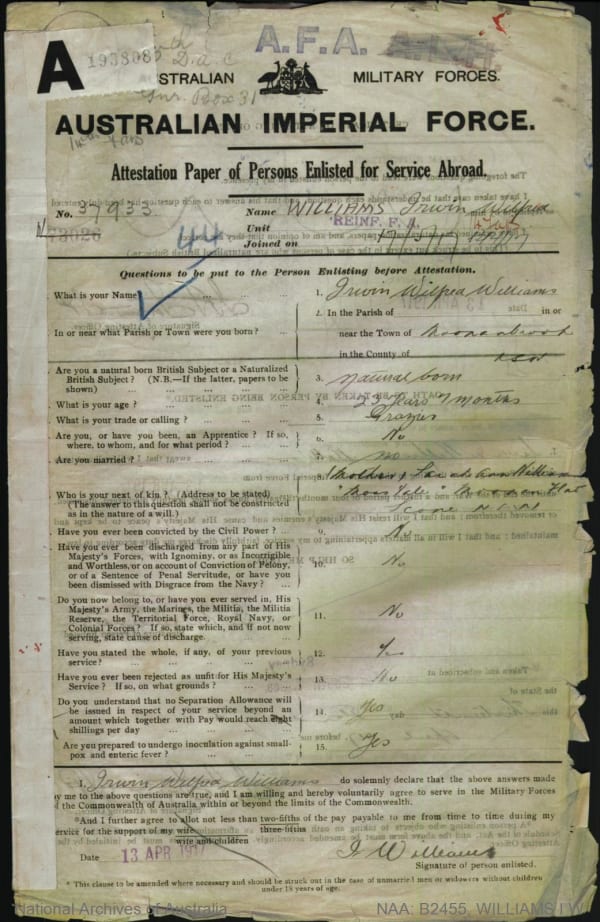 A.F.A.
A
1938085 D.A.C
AUSTRALIAN MILITARY FORCES.
Gnr. Box 31
AUSTRALIAN IMPERIAL FORCE.
Attestation Paper of Persons Enlisted for Service Abroad.
No. 37933
Name WILLIAMS Irwin Wilfred
N 73026
44
Unit REINF. F. A.
Joined on
Questions to be put to the Person Enlisting before Attestation.
What is your Name? ... ... ... 1. Irwin Wilfred Williams
In or near what Parish or Town were you born? ... 2. In the Parish of in or
near the Town of
in the County of NSW
Are you a natural born British Subject or a Naturalized
British Subject? (N.B.—If the latter, papers to be
shown) ... ... ... 3. Natural born
What is your age? ... ... ... 4. months
What is your trade or calling? ... ... 5. Grazier
Are you, or have you been, an Apprentice? If so,
where, to whom, and for what period? ... ... 6. No
Are you married? ... ... ... 7. No
Who is your next of kin? (Address to be stated)
(The answer to this question shall not be constructed
as in the nature of a will.) 8. Mother, Sarah Ann Williams
Scone N.S.W
Have you ever been convicted by the Civil Power? ... 9. No
Have you ever been discharged from any part of His
Majesty's Forces, with Ignominy, or as Incorrigible
and Worthless, or on account of Conviction of Felony,
or of a Sentence of Penal Servitude, or have you
been dismissed with Disgrace from the Navy? ... 10. No
Do you now belong to, or have you ever served in, His
Majesty's Army, the Marines, the Militia, the Militia
Reserve, the Territorial Force, Royal Navy, or
Colonial Forces? If so, state which, and if not now
serving, state cause of discharge. 11. No
Have you stated the whole, if any, of your previous
service? ... ... ... 12. Yes
Have you ever been rejected as unfit for His Majesty's
Service? If so, on what grounds? ... ... 13. No
Do you understand that no Separation Allowance will
be issued in respect of your service beyond an
amount which together with Pay would reach eight
shillings per day ... ... ... 14. Yes
Are you prepared to undergo inoculation against small-
pox and enteric fever? ... ... ... 15. Yes
I, Irwin Wilfred Williams do solemnly declare that the above answers made
by me to the above questions are true, and I am willing and hereby voluntarily agree to serve in the Military Forces
of the Commonwealth of Australia within or beyond the limits of the Commonwealth.
*And I further agree to allot not less than two-fifths of the pay payable to me from time to time during my
service for the support of my wife three-fifths
wife and children
Date 13 APR 1917 I Williams
Signature of person enlisted.
* This clause to be amended where necessary and should be struck out in the case of unmarried men or widowers without children
under 18 years of age.
National Archives of Australia NAA: B2455, WILLIAMS I W